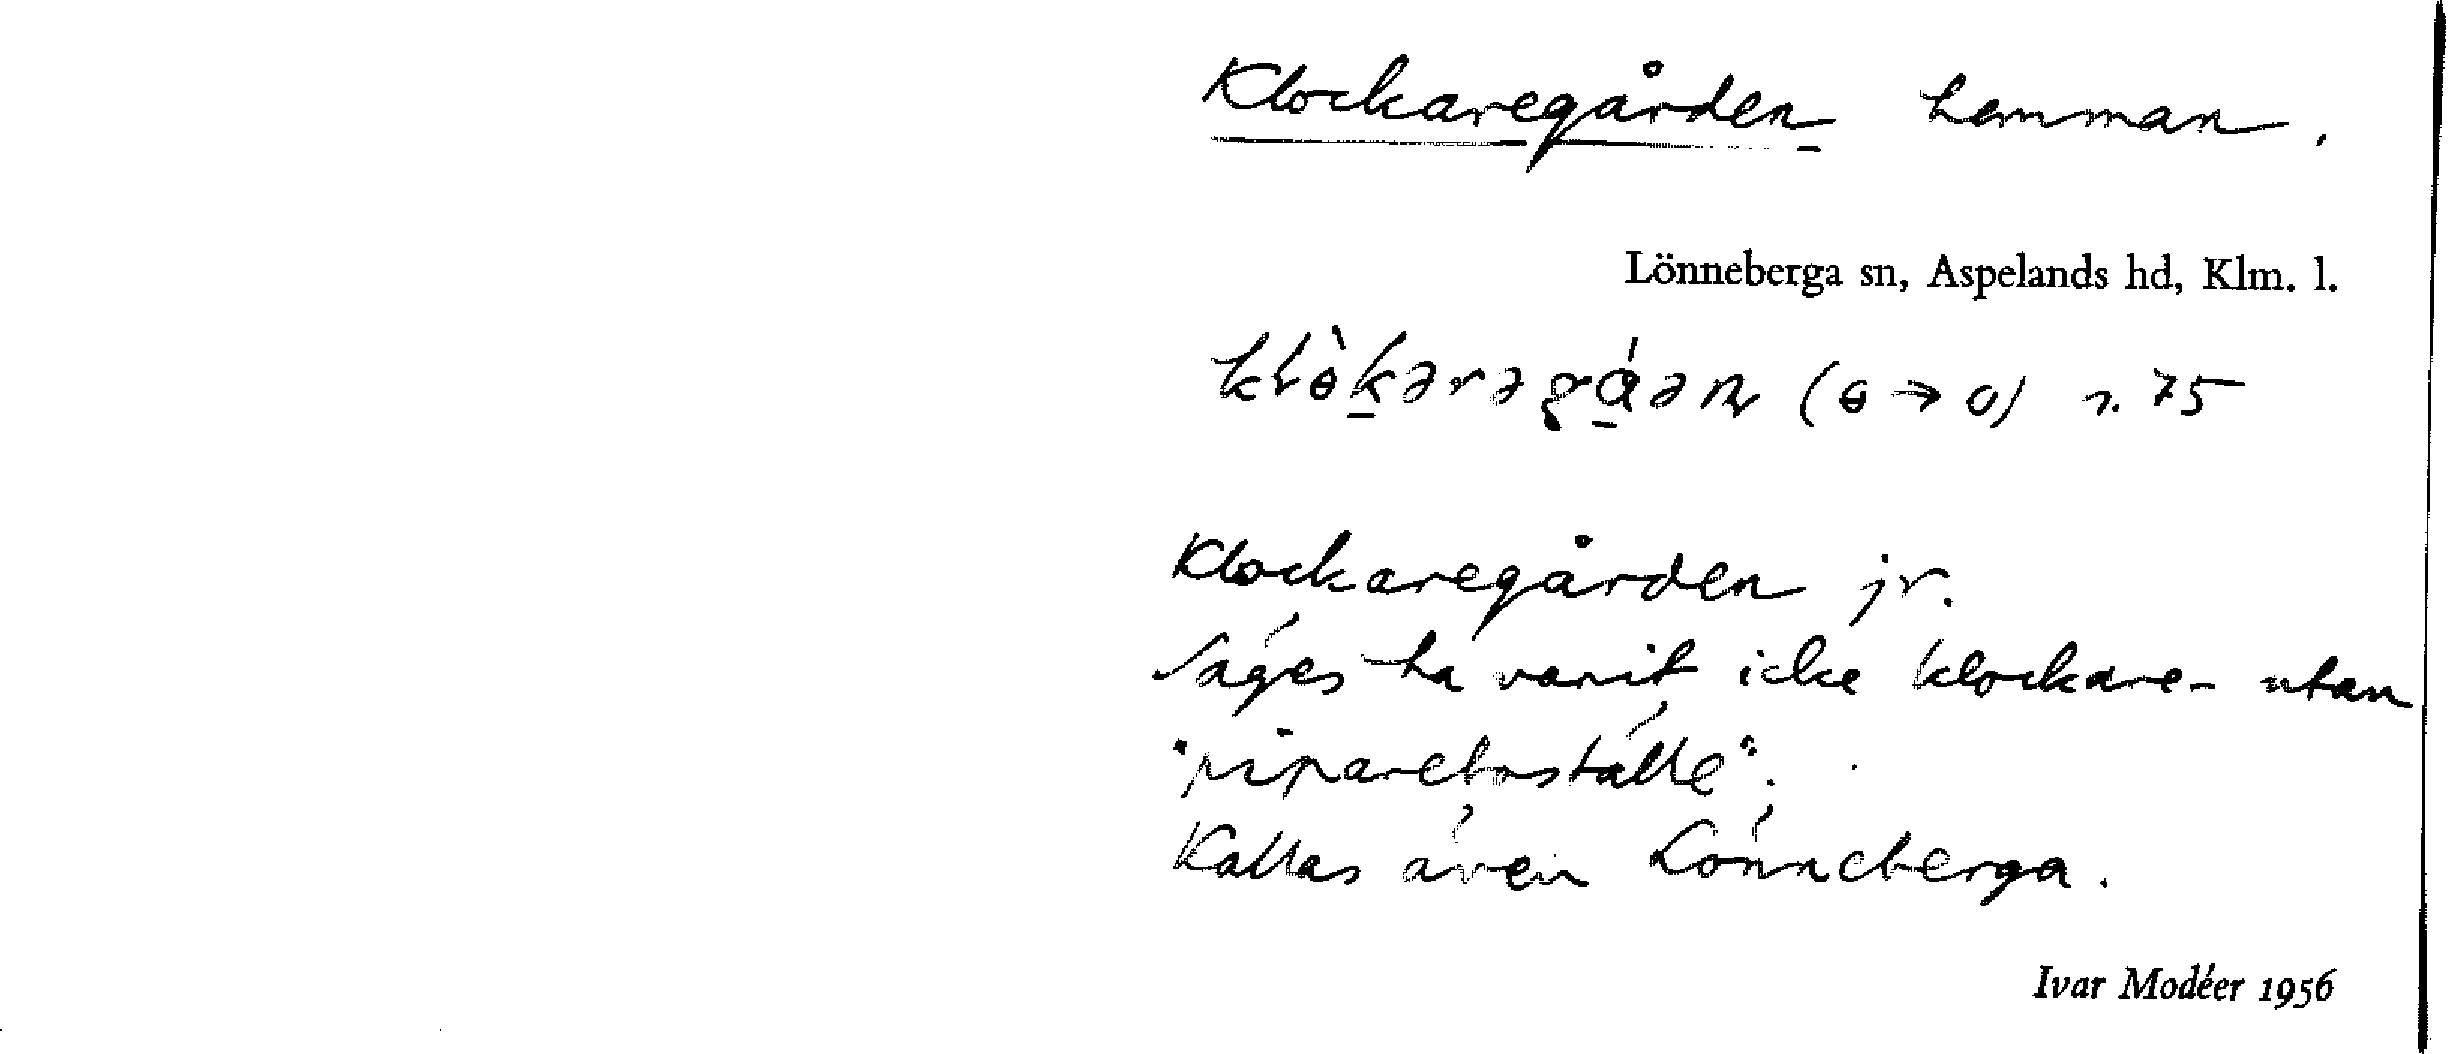 Klockaregården hemman.
Lönneberga sn, Aspelands hd, Klm. l.
(ɵ → o) s. 75
Klockaregården jr.
Säges ha varit icke klockare- utan
"pipareboställe".
Kallas även Lönneberga.
Ivar Modéer 1956